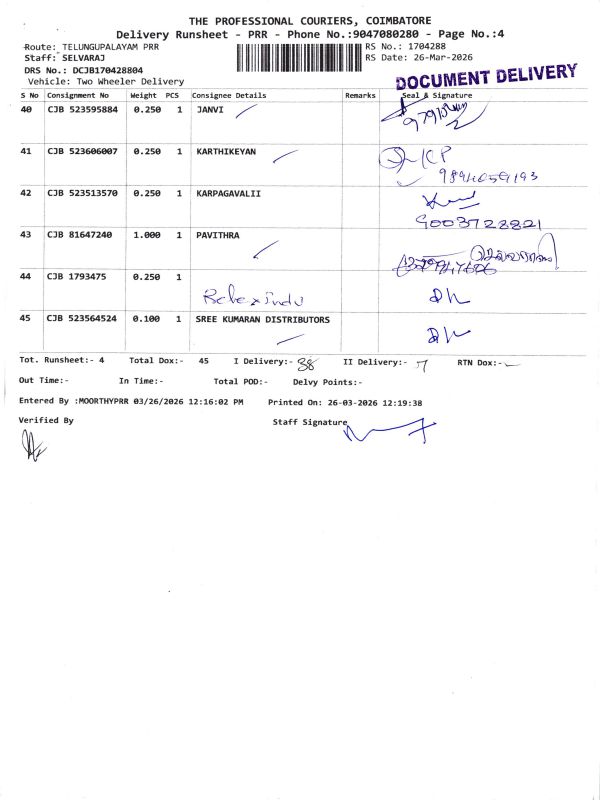 THE PROFESSIONAL COURIERS, COIMBATORE
Delivery Runsheet - PRR - Phone No.:9047080280 - Page No.:4
Route: TELUNGUPALAYAM PRR
RS No.: 1704288
Staff: SELVARAJ
RS Date: 26-Mar-2026
DRS No.: DCJB170428804
Vehicle: Two Wheeler Delivery
DOCUMENT DELIVERY
S No Consignment No Weight PCS Consignee Details Remarks Seal & Signature
40 CJB 523595884 0.250 1 JANVI
41 CJB 523606007 0.250 1 KARTHIKEYAN
KP
9894059193
42 CJB 523513570 0.250 1 KARPAGAVALII
9003728821
43 CJB 81647240 1.000 1 PAVITHRA
44 CJB 1793475 0.250 1
45 CJB 523564524 0.100 1 SREE KUMARAN DISTRIBUTORS
Tot. Runsheet:- 4 Total Dox:- 45 I Delivery:- 38 II Delivery:- 7 RTN Dox:-
Out Time:- In Time:- Total POD:- Delvy Points:-
Entered By :MOORTHYPRR 03/26/2026 12:16:02 PM Printed On: 26-03-2026 12:19:38
Verified By Staff Signature